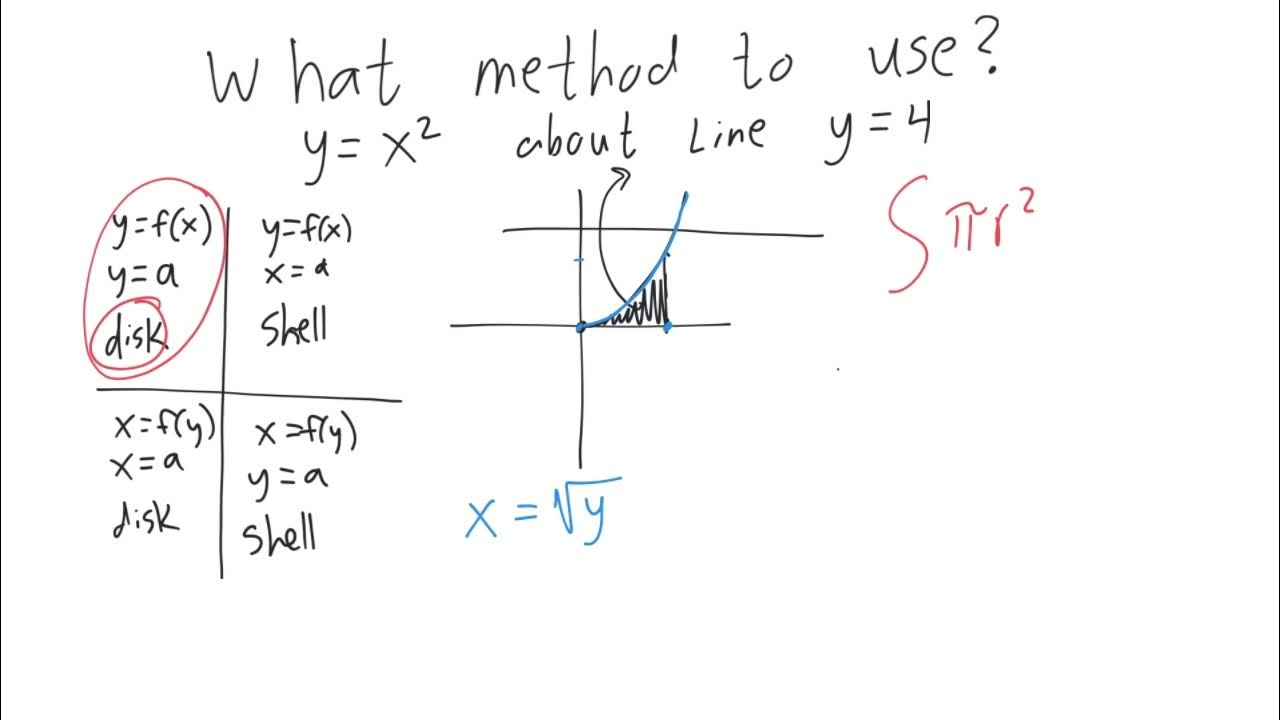 What method to use?
y = x² about Line y = 4
y=f(x)
y = a
disk
y=f(x)
x = a
shell
x=f(y)
x = a
disk
x=f(y)
y = a
shell
∫πr²
x = √y